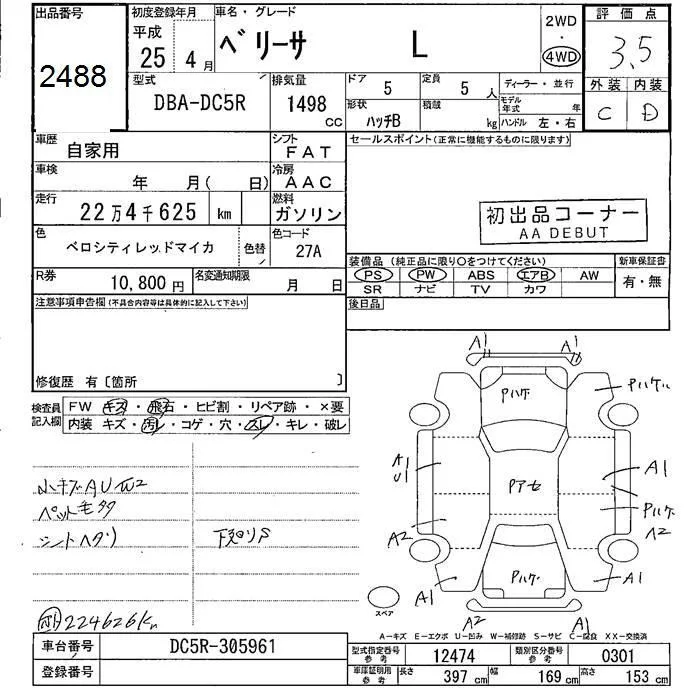 出品番号 初度登録年月 車名・グレード 2WD 評価点
2488 平成 25 4月 ベリーサ L ・ 4WD 3.5
型式 排気量 ドア 定員 ディーラー・並行 外装 内装
DBA-DC5R 1498 CC 5 5人 モデル年式 年 C D
形状 ハッチB 積載 kg ハンドル 左・右
車歴 自家用 シフト FAT セールスポイント(正常に機能するものに限ります)
車検 年 月( 日) 冷房 AAC
走行 22万4千625 km 燃料 ガソリン 初出品コーナー
AA DEBUT
色 ベロシティレッドマイカ 色替 色コード 27A
装備品(純正品に限り○をつけてください) 新車保証書
R券 10,800円 名変通知期限 月 日 PS PW ABS エアB AW 有・無
SR ナビ TV カワ
注意事項申告欄(不具合内容等は具体的に記入して下さい) 後日品
修復歴 有〔箇所 〕
検査員記入欄 FW キズ・飛石・ヒビ割・リペア跡・×要
内装 キズ・汚レ・コゲ・穴・スレ・キレ・破レ
A1 A1
Pハゲ Pハゲル
A1
U1 Pアセ A1
Pハゲ
A2 A2
Pハゲ
A1 A1
A2 A1
小キズAU
ペット毛
シートヘタリ 下廻りS
224626Km
スペア
A-キズ E-エクボ U-凹み W-補修跡 S-サビ C-腐食 XX-交換済
車台番号 DC5R-305961 型式指定番号 参考 12474 類別区分番号 参考 0301
登録番号 車庫証明用 参考 長さ 397cm 幅 169cm 高さ 153cm